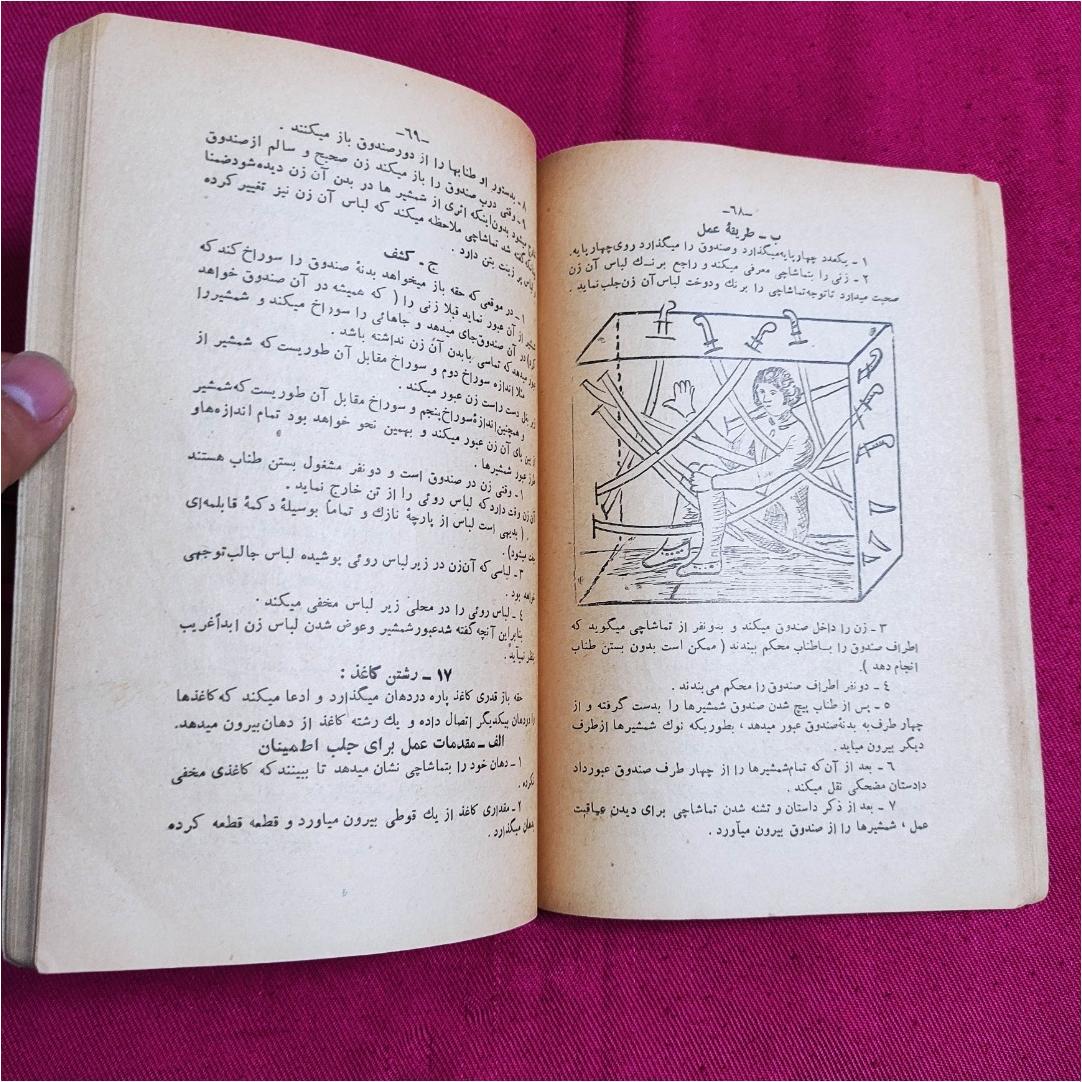 -٦٨-
ب - طریقهٔ عمل
١ - یکعدد چهارپایه میگذارد وصندوق را میگذارد روی چهارپایه.
٢ - زنی را بتماشاچی معرفی میکند و راجع برنك لباس آن زن
صحبت میدارد تاتوجه تماشاچی را برنك ودوخت لباس آن زن جلب نماید .
٣ - زن را داخل صندوق میکند و بدونفر از تماشاچی میگوید که
اطراف صندوق را باطناب محکم ببندند ( ممکن است بدون بستن طناب
انجام دهد ).
٤ - دونفر اطراف صندوق را محکم می‌بندند .
٥ - پس از طناب پیچ شدن صندوق شمشیرها را بدست گرفته و از
چهار طرف به بدنهٔ صندوق عبور میدهد ، بطوریکه نوك شمشیرها ازطرف
دیگر بیرون میاید .
٦ - بعد از آن که تمام شمشیرها را از چهار طرف صندوق عبورداد
دادستان مضحکی نقل میکند .
٧ - بعد از ذکر داستان و تشنه شدن تماشاچی برای دیدن عاقبت
عمل ، شمشیرها را از صندوق بیرون میآورد .
-٦٩-
٨ - بدستور او طنابها را از دورصندوق باز میکنند .
٩ - وقتی درب صندوق را باز میکند زن صحیح و سالم ازصندوق
میشود بدون‌اینکه اثری از شمشیر ها در بدن آن زن دیده‌شودضمنا
گفت شد تماشاچی ملاحظه میکند که لباس آن زن نیز تغییر کرده
لباس پر زینت بتن دارد .
ج - کشف
١ - در موقعی که حقه باز میخواهد بدنهٔ صندوق را سوراخ کند که
از آن عبور نماید قبلا زنی را ( که همیشه در آن صندوق خواهد
در آن صندوق جای میدهد و جاهائی را سوراخ میکند و شمشیررا
میدهد که تماسی بابدن آن زن نداشته باشد .
مثلا اندازه سوراخ دوم و سوراخ مقابل آن طوریست که شمشیر از
بغل دست راست زن عبور میکند .
و همچنین اندازهٔ سوراخ پنجم و سوراخ مقابل آن طوریست که شمشیر
پای آن زن عبور میکند و بهمین نحو خواهد بود تمام اندازه‌هاو
طرز عبور شمشیرها .
١ - وقتی زن در صندوق است و دونفر مشغول بستن طناب هستند
آن زن وقت دارد که لباس روئی را از تن خارج نماید .
( بدیهی است لباس از پارچهٔ نازك و تماماً بوسیلهٔ دکمهٔ قابلمه‌ای
میشود) .
٣ - لباسی که آن‌زن در زیر لباس روئی پوشیده لباس جالب توجهی
خواهد بود .
٤ - لباس روئی را در محلی زیر لباس مخفی میکند .
بنابراین آنچه گفته شدعبورشمشیر وعوض شدن لباس زن ابداًغریب
نظر نمیآید .
١٧ - رشتن کاغذ :
حقه باز قدری کاغذ پاره دردهان میگذارد و ادعا میکند که کاغذها
را دردهان بیکدیگر اتصال داده و یك رشته کاغذ از دهان بیرون میدهد.
الف - مقدمات عمل برای جلب اطمینان
١ - دهان خود را بتماشاچی نشان میدهد تا ببینند که کاغذی مخفی
نکرده .
٢ - مقداری کاغذ از یك قوطی بیرون میاورد و قطعه قطعه کرده
بدهان میگذارد .